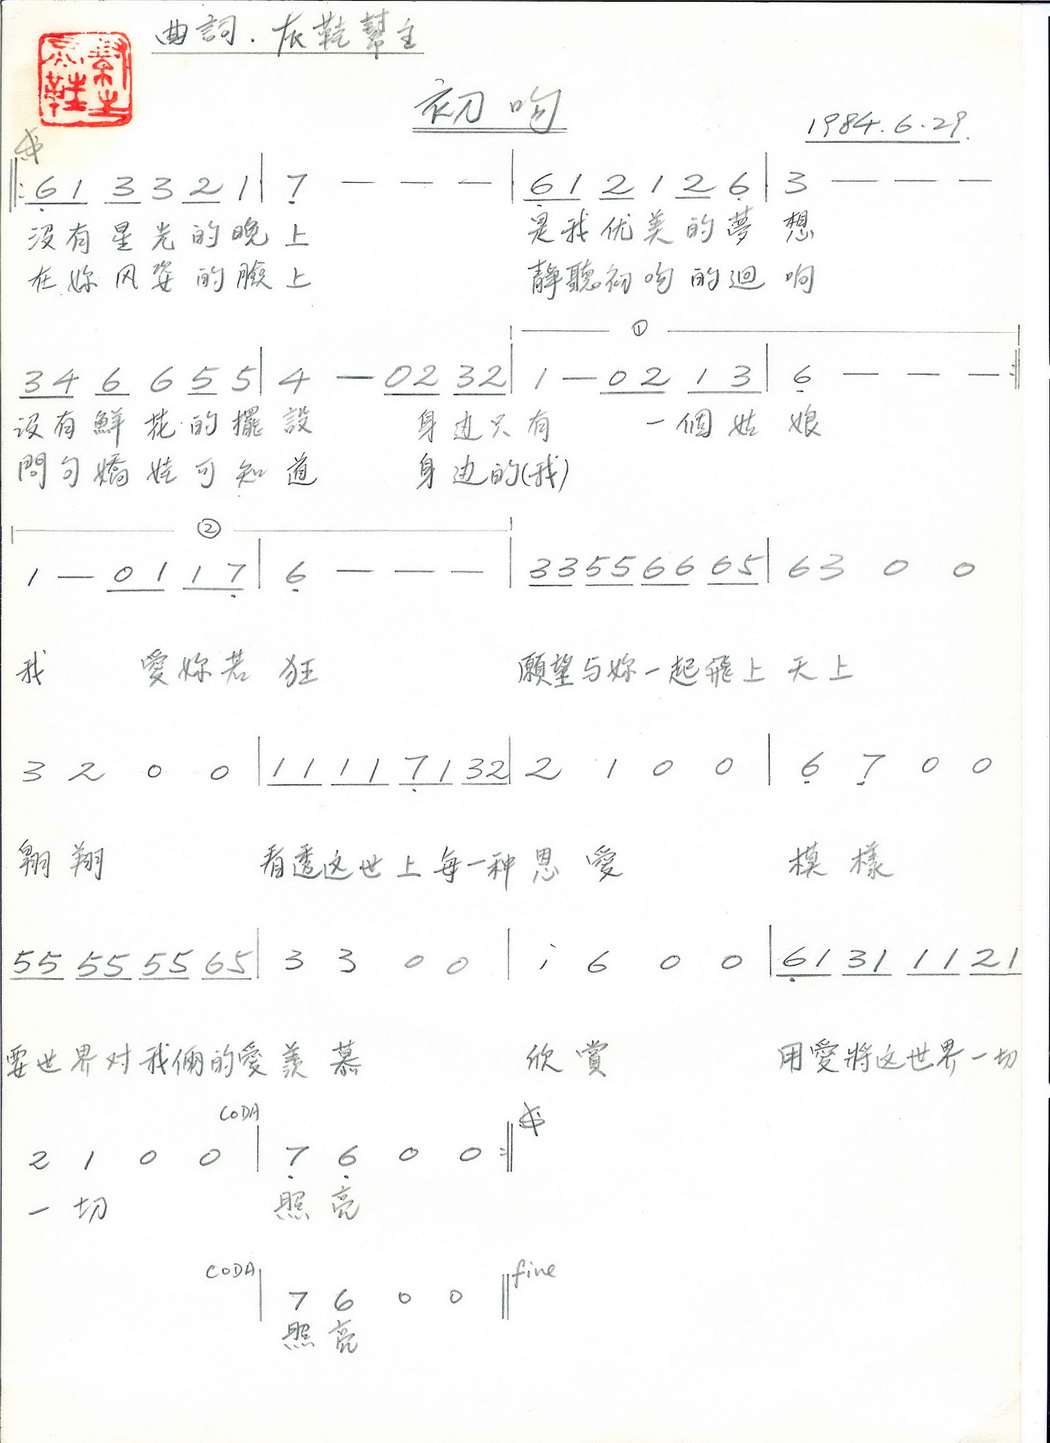 曲詞．灰鞋幫主
初吻
1984.6.29.
𝄋
‖: 6̣ 1 3 3 2 1 | 7̣ — — — | 6̣ 1 2 1 2 6̣ | 3 — — —
沒有星光的晚上 是我优美的夢想
在妳风姿的臉上 靜聽初吻的迴响
①
3 4 6 6 5 5 | 4 — 0 2 3 2 | 1 — 0 2 1 3 | 6̣ — — — :‖
沒有鮮花的擺設 身边只有 一個姑娘
問句嬌娃可知道 身边的(我)
②
1 — 0 1 1 7̣ | 6̣ — — — | 3 3 5 5 6 6 6 5 | 6 3 0 0
我 愛妳若狂 願望与妳一起飛上天上
3 2 0 0 | 1 1 1 1 7̣ 1 3 2 | 2 1 0 0 | 6̣ 7̣ 0 0
翱翔 看透这世上每一种恩愛 模樣
5 5 5 5 5 5 6 5 | 3 3 0 0 | i 6 0 0 | 6̣ 1 3 1 1 1 2 1
要世界对我倆的愛羨慕 欣賞 用愛將这世界一切
CODA
2 1 0 0 | 7̣ 6̣ 0 0 :‖ 𝄋
一切 照亮
CODA | 7 6 0 0 ‖ fine
照亮